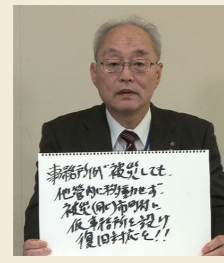 事務所が被災しても、
他管内に移動せず
被災(同じ)市町村に
仮事務所を設け
復旧対応を!!